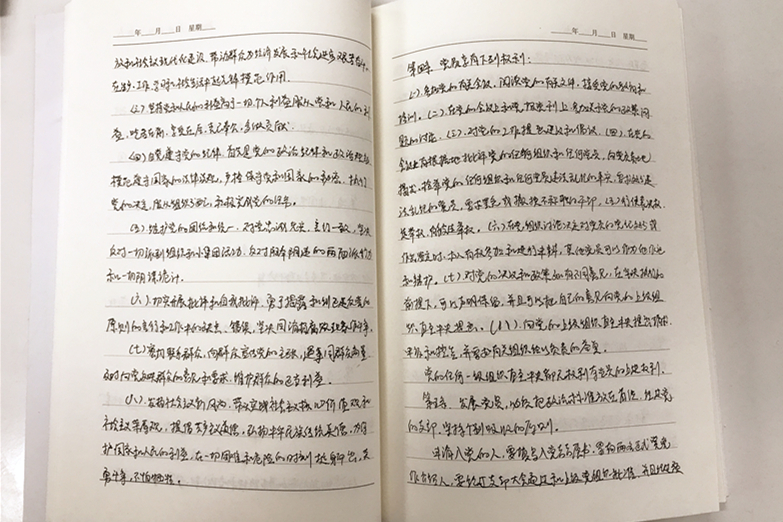 年 月 日 星期
放和社会主义现代化建设，带动群众为经济发展和社会进步艰苦奋斗，
在生产、工作、学习和社会生活中起先锋模范作用。
(三) 坚持党和人民的利益高于一切，个人利益服从党和人民的利
益，吃苦在前，享受在后，克己奉公，多做贡献。
(四) 自觉遵守党的纪律，首先是党的政治纪律和政治规矩，
模范遵守国家的法律法规，严格保守党和国家的秘密，执行
党的决定，服从组织分配，积极完成党的任务。
(五) 维护党的团结和统一，对党忠诚老实，言行一致，坚决
反对一切派别组织和小集团活动，反对阳奉阴违的两面派行为
和一切阴谋诡计。
(六) 切实开展批评和自我批评，勇于揭露和纠正违反党的
原则的言行和工作中的缺点、错误，坚决同消极腐败现象作斗争。
(七) 密切联系群众，向群众宣传党的主张，遇事同群众商量，
及时向党反映群众的意见和要求，维护群众的正当利益。
(八) 发扬社会主义新风尚，带头实践社会主义核心价值观和
社会主义荣辱观，提倡共产主义道德，弘扬中华民族传统美德，为保
护国家和人民的利益，在一切困难和危险的时刻挺身而出，英
勇斗争，不怕牺牲。
年 月 日 星期
第四条 党员享有下列权利：
(一) 参加党的有关会议，阅读党的有关文件，接受党的教育和
培训。(二) 在党的会议上和党报党刊上，参加关于党的政策问
题的讨论。(三) 对党的工作提出建议和倡议。(四) 在党的
会议上有根据地批评党的任何组织和任何党员，向党负责地
揭发、检举党的任何组织和任何党员违法乱纪的事实，要求处分违
法乱纪的党员，要求罢免或撤换不称职的干部。(五) 行使表决权、
选举权，有被选举权。(六) 在党组织讨论决定对党员的党纪处分或
作出鉴定时，本人有权参加和进行申辩，其他党员可以为他作证
和辩护。(七) 对党的决议和政策如有不同意见，在坚决执行的
前提下，可以声明保留，并且可以把自己的意见向党的上级组
织直至中央提出。(八) 向党的上级组织直至中央提出请求、
申诉和控告，并要求有关组织给以负责的答复。
党的任何一级组织直至中央都无权剥夺党员的上述权利。
第五条 发展党员，必须把政治标准放在首位，经过党
的支部，坚持个别吸收的原则。
申请入党的人，要填写入党志愿书，要有两名正式党员
作介绍人，要经过支部大会通过和上级党组织批准，并且经过